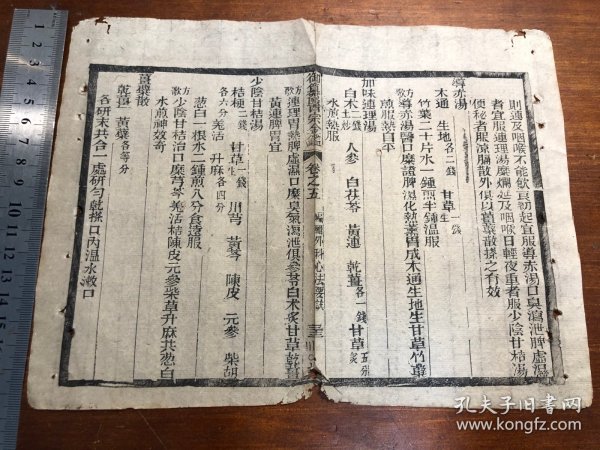 則通及咽喉不能飲食初起宜服導赤湯口臭瀉泄脾虛濕
者宜服連理湯糜爛延及咽喉日輕夜重者服少陰甘桔湯
便秘者服涼膈散外俱以薑糵散搽之有效
導赤湯
木通 生地各二錢 甘草生一錢
竹葉二十片水一鍾煎半鍾溫服
方歌 導赤湯醫口糜證脾濕化熱薰胃成木通生地生甘草竹葉
煎服熱自平
加味連理湯
白木土炒二錢 人參 白茯苓 黃連 乾薑各一錢 甘草炙五分
水煎熱服
御纂醫宗金鑑 卷之五 編輯外科心法要訣
方歌 連理胃熱脾虛濕口糜臭氣瀉泄俱參苓白木炙甘草乾薑
黃連脾胃宜
少陰甘桔湯
桔梗二錢 甘草生一錢 川芎 黃芩 陳皮 元參 柴胡
各六分 羌活 升麻各四分
葱白一根水二鍾煎八分食遠服
方歌 少陰甘桔治口糜芎芩羌活桔陳皮元參柴草升麻共葱白
水煎神效奇
薑糵散
乾薑 黃糵各等分
各研末共合一處研勻乾搽口內溫水漱口
孔夫子旧書网
www.kongfz.com